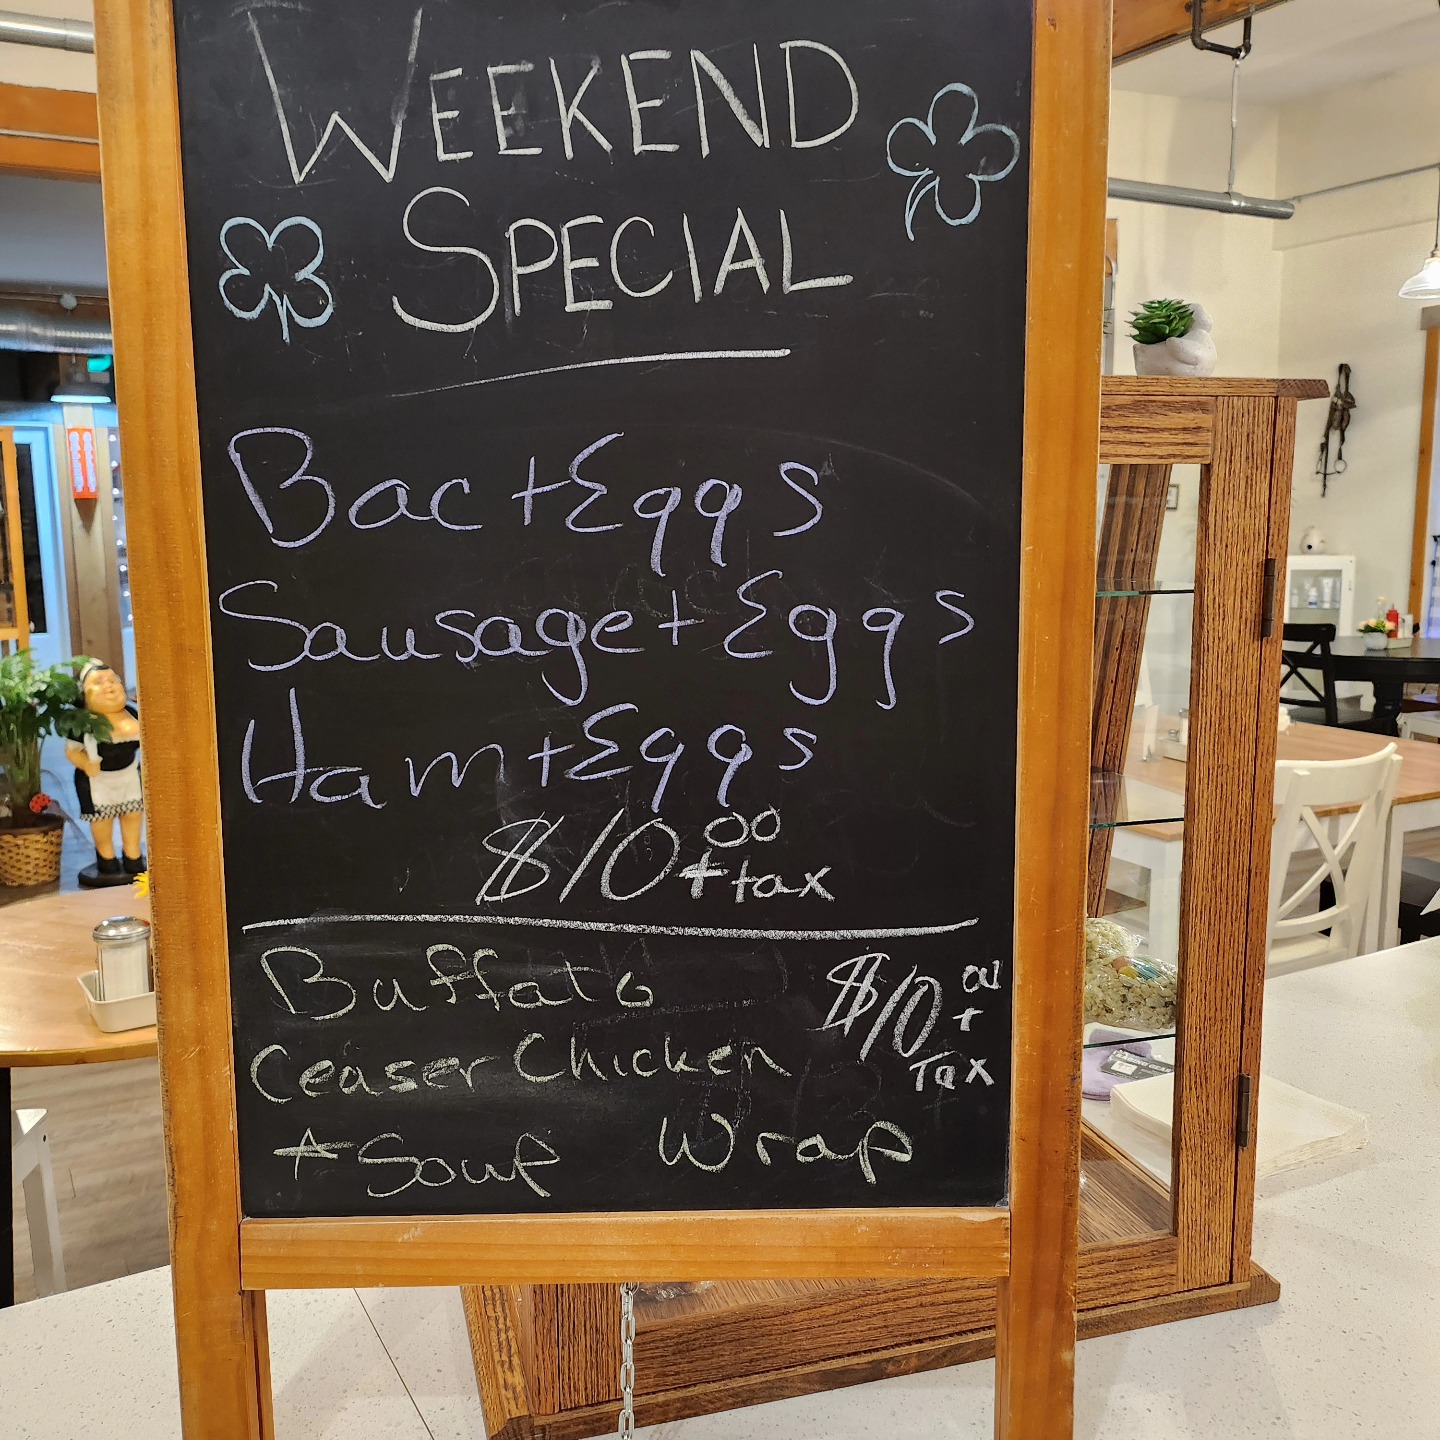 WEEKEND
SPECIAL
Bac + Eggs
Sausage + Eggs
Ham + Eggs
$10.00 + tax
Buffalo
Ceaser Chicken
+ Soup Wrap
$10.00
+
Tax